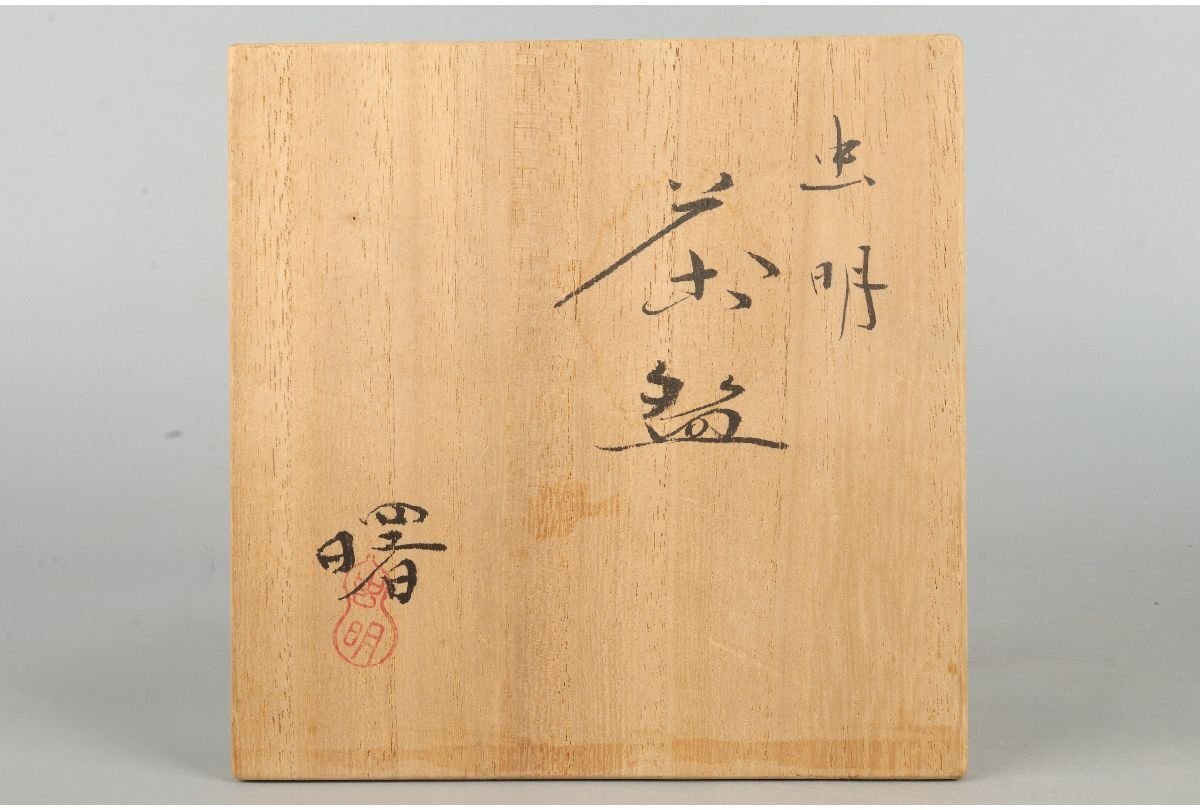 虫明
茶盌
曙
明